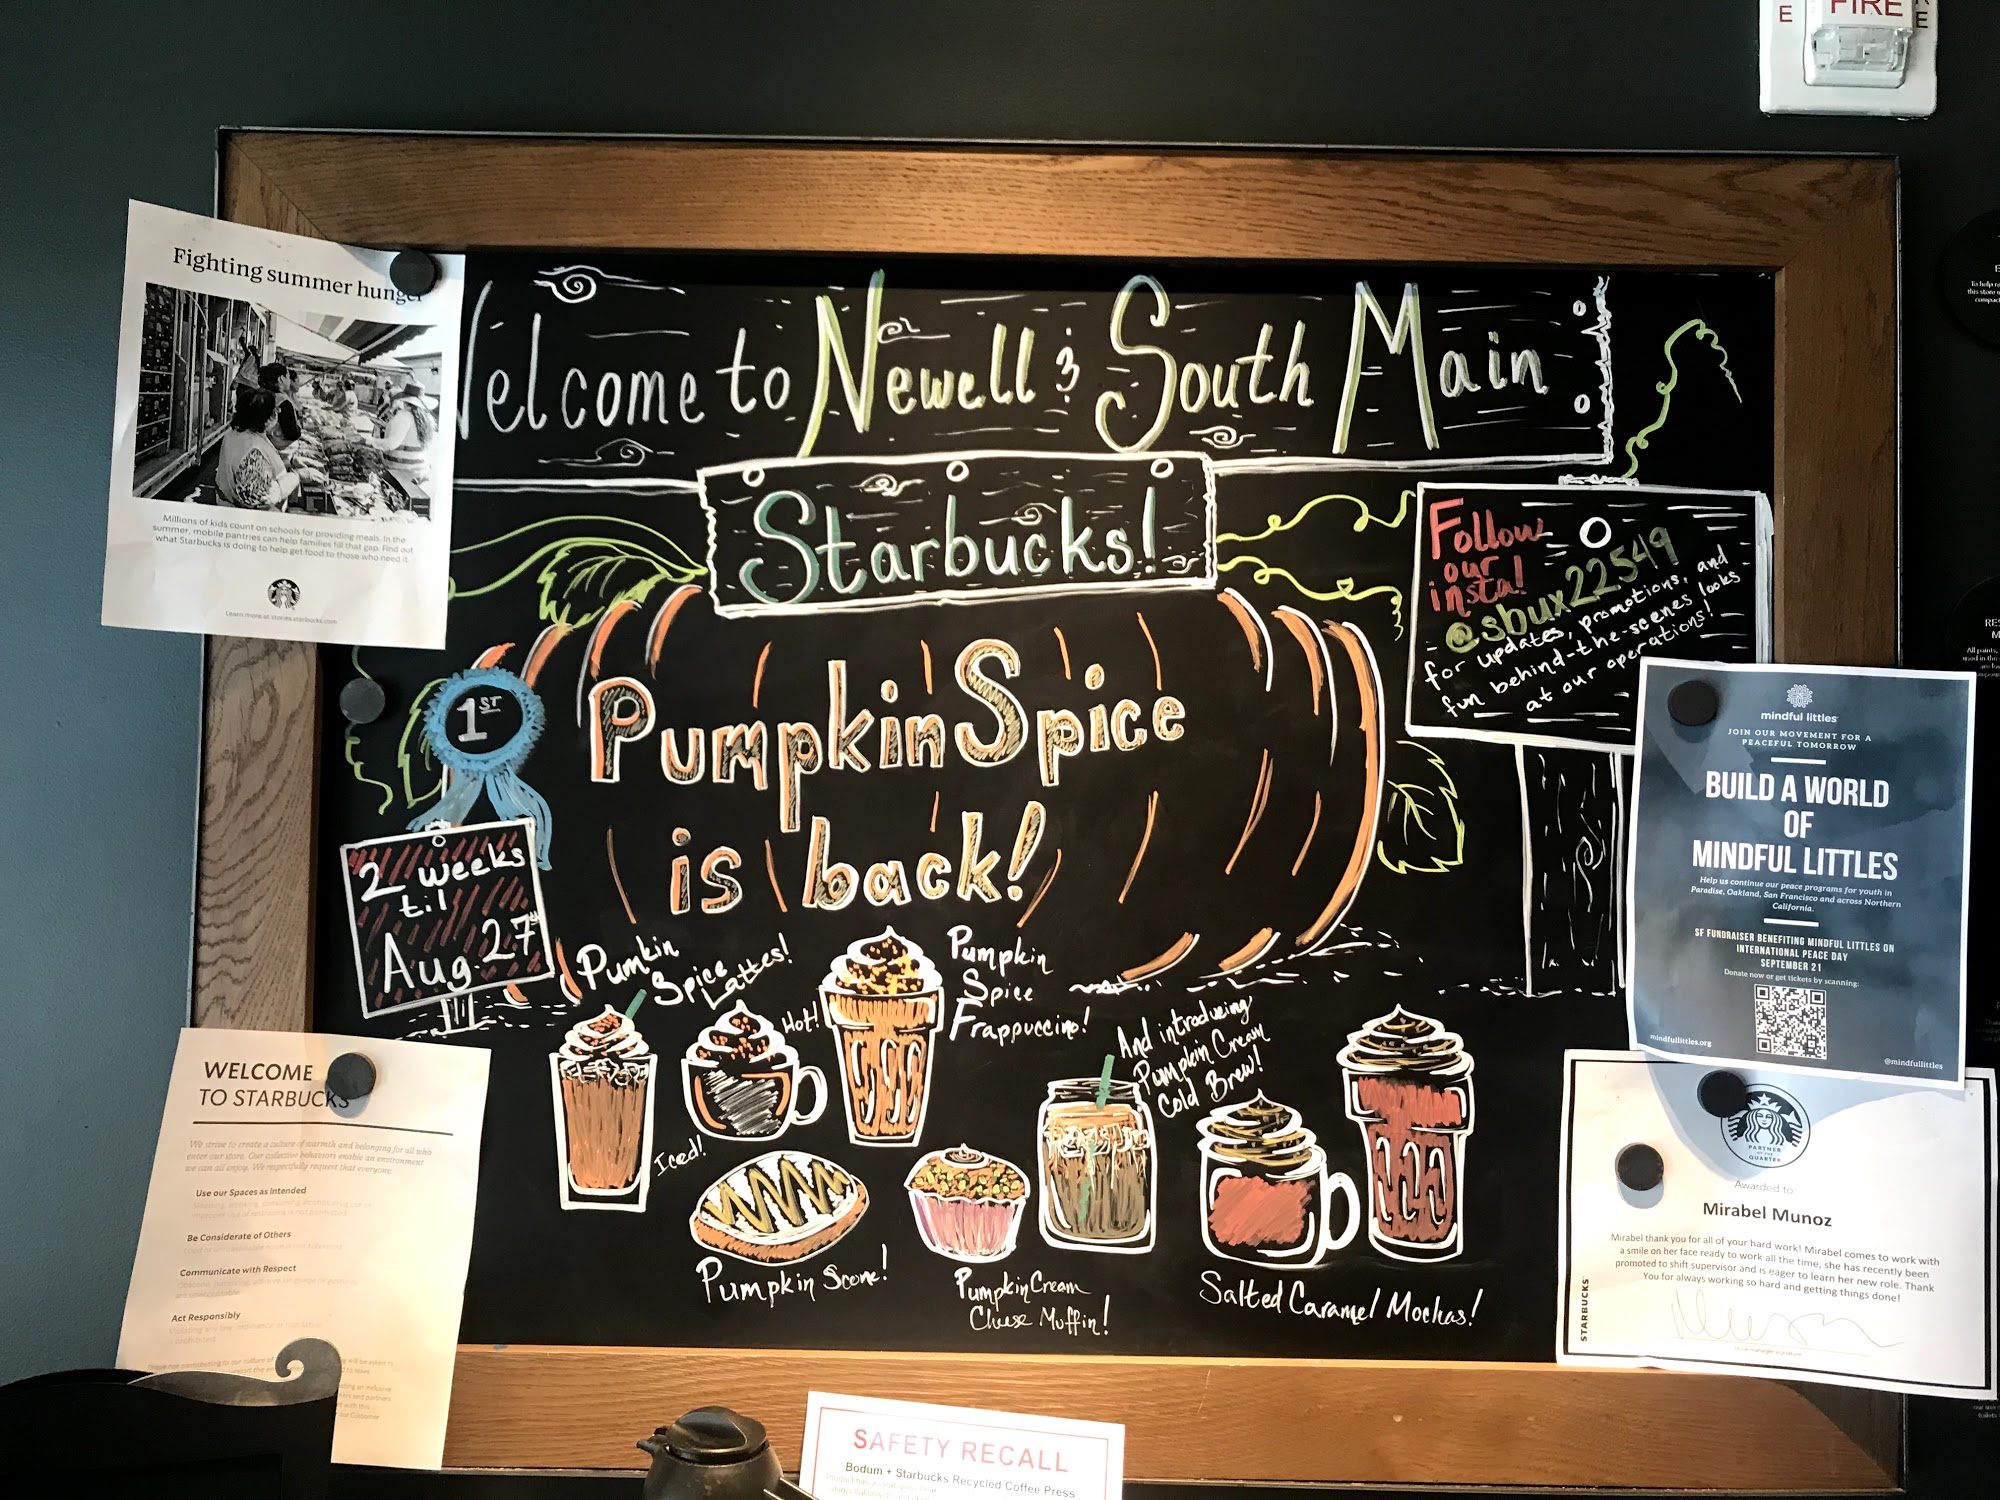 FIRE
E
E
Fighting summer hunger
Millions of kids count on schools for providing meals. In the
summer, mobile pantries can help families fill that gap. Find out
what Starbucks is doing to help get food to those who need it.
Learn more at stories.starbucks.com
Welcome to Newell & South Main
Starbucks!
Follow
our
insta!
@sbux22549
for updates, promotions, and
fun behind-the-scenes looks
at our operations!
1ST
Pumpkin Spice
is back!
2 weeks
til
Aug 27th
Pumkin
Spice
Lattes!
Hot!
Iced!
Pumpkin
Spice
Frappuccino!
And introducing
Pumpkin Cream
Cold Brew!
Pumpkin Scone!
Pumpkin Cream
Cheese Muffin!
Salted Caramel Mochas!
mindful littles
JOIN OUR MOVEMENT FOR A
PEACEFUL TOMORROW
BUILD A WORLD
OF
MINDFUL LITTLES
Help us continue our peace programs for youth in
Paradise, Oakland, San Francisco and across Northern
California.
SF FUNDRAISER BENEFITING MINDFUL LITTLES ON
INTERNATIONAL PEACE DAY
SEPTEMBER 21
Donate now or get tickets by scanning:
mindfullittles.org
@mindfullittles
WELCOME
TO STARBUCKS
We strive to create a culture of warmth and belonging for all who
enter our store. Our collective behaviors enable an environment
we can all enjoy. We respectfully request that everyone
Use our Spaces as Intended
Be Considerate of Others
Communicate with Respect
Act Responsibly
PARTNER
OF THE
QUARTER
Awarded to:
Mirabel Munoz
Mirabel thank you for all of your hard work! Mirabel comes to work with
a smile on her face ready to work all the time, she has recently been
promoted to shift supervisor and is eager to learn her new role. Thank
You for always working so hard and getting things done!
STARBUCKS
SAFETY RECALL
Bodum + Starbucks Recycled Coffee Press